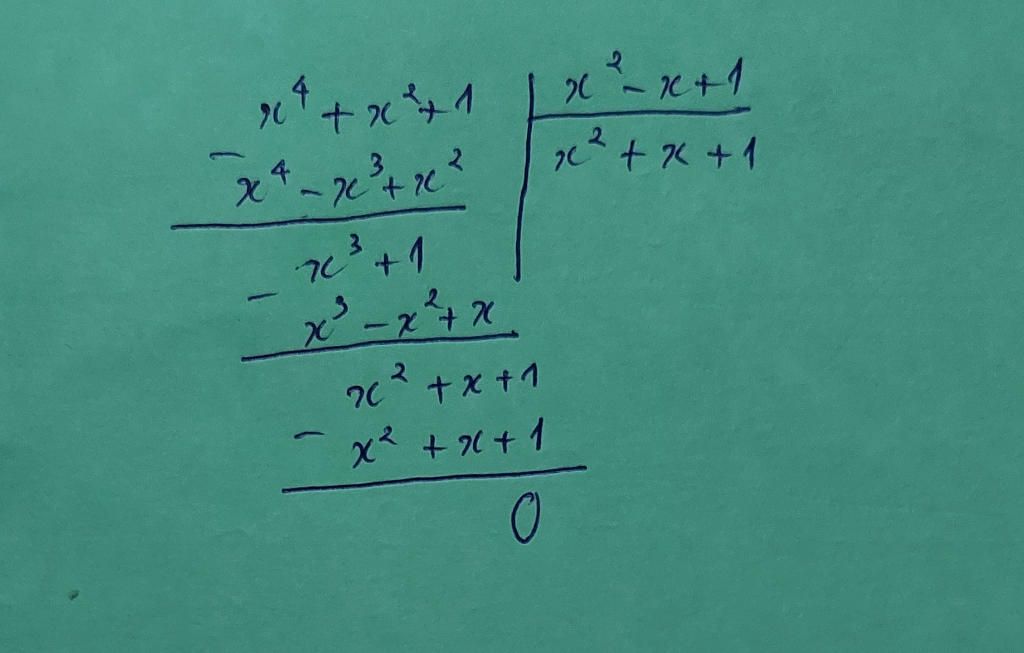 x⁴ + x² + 1 | x² - x + 1
- x⁴ - x³ + x² | x² + x + 1
x³ + 1
- x³ - x² + x
x² + x + 1
- x² + x + 1
0